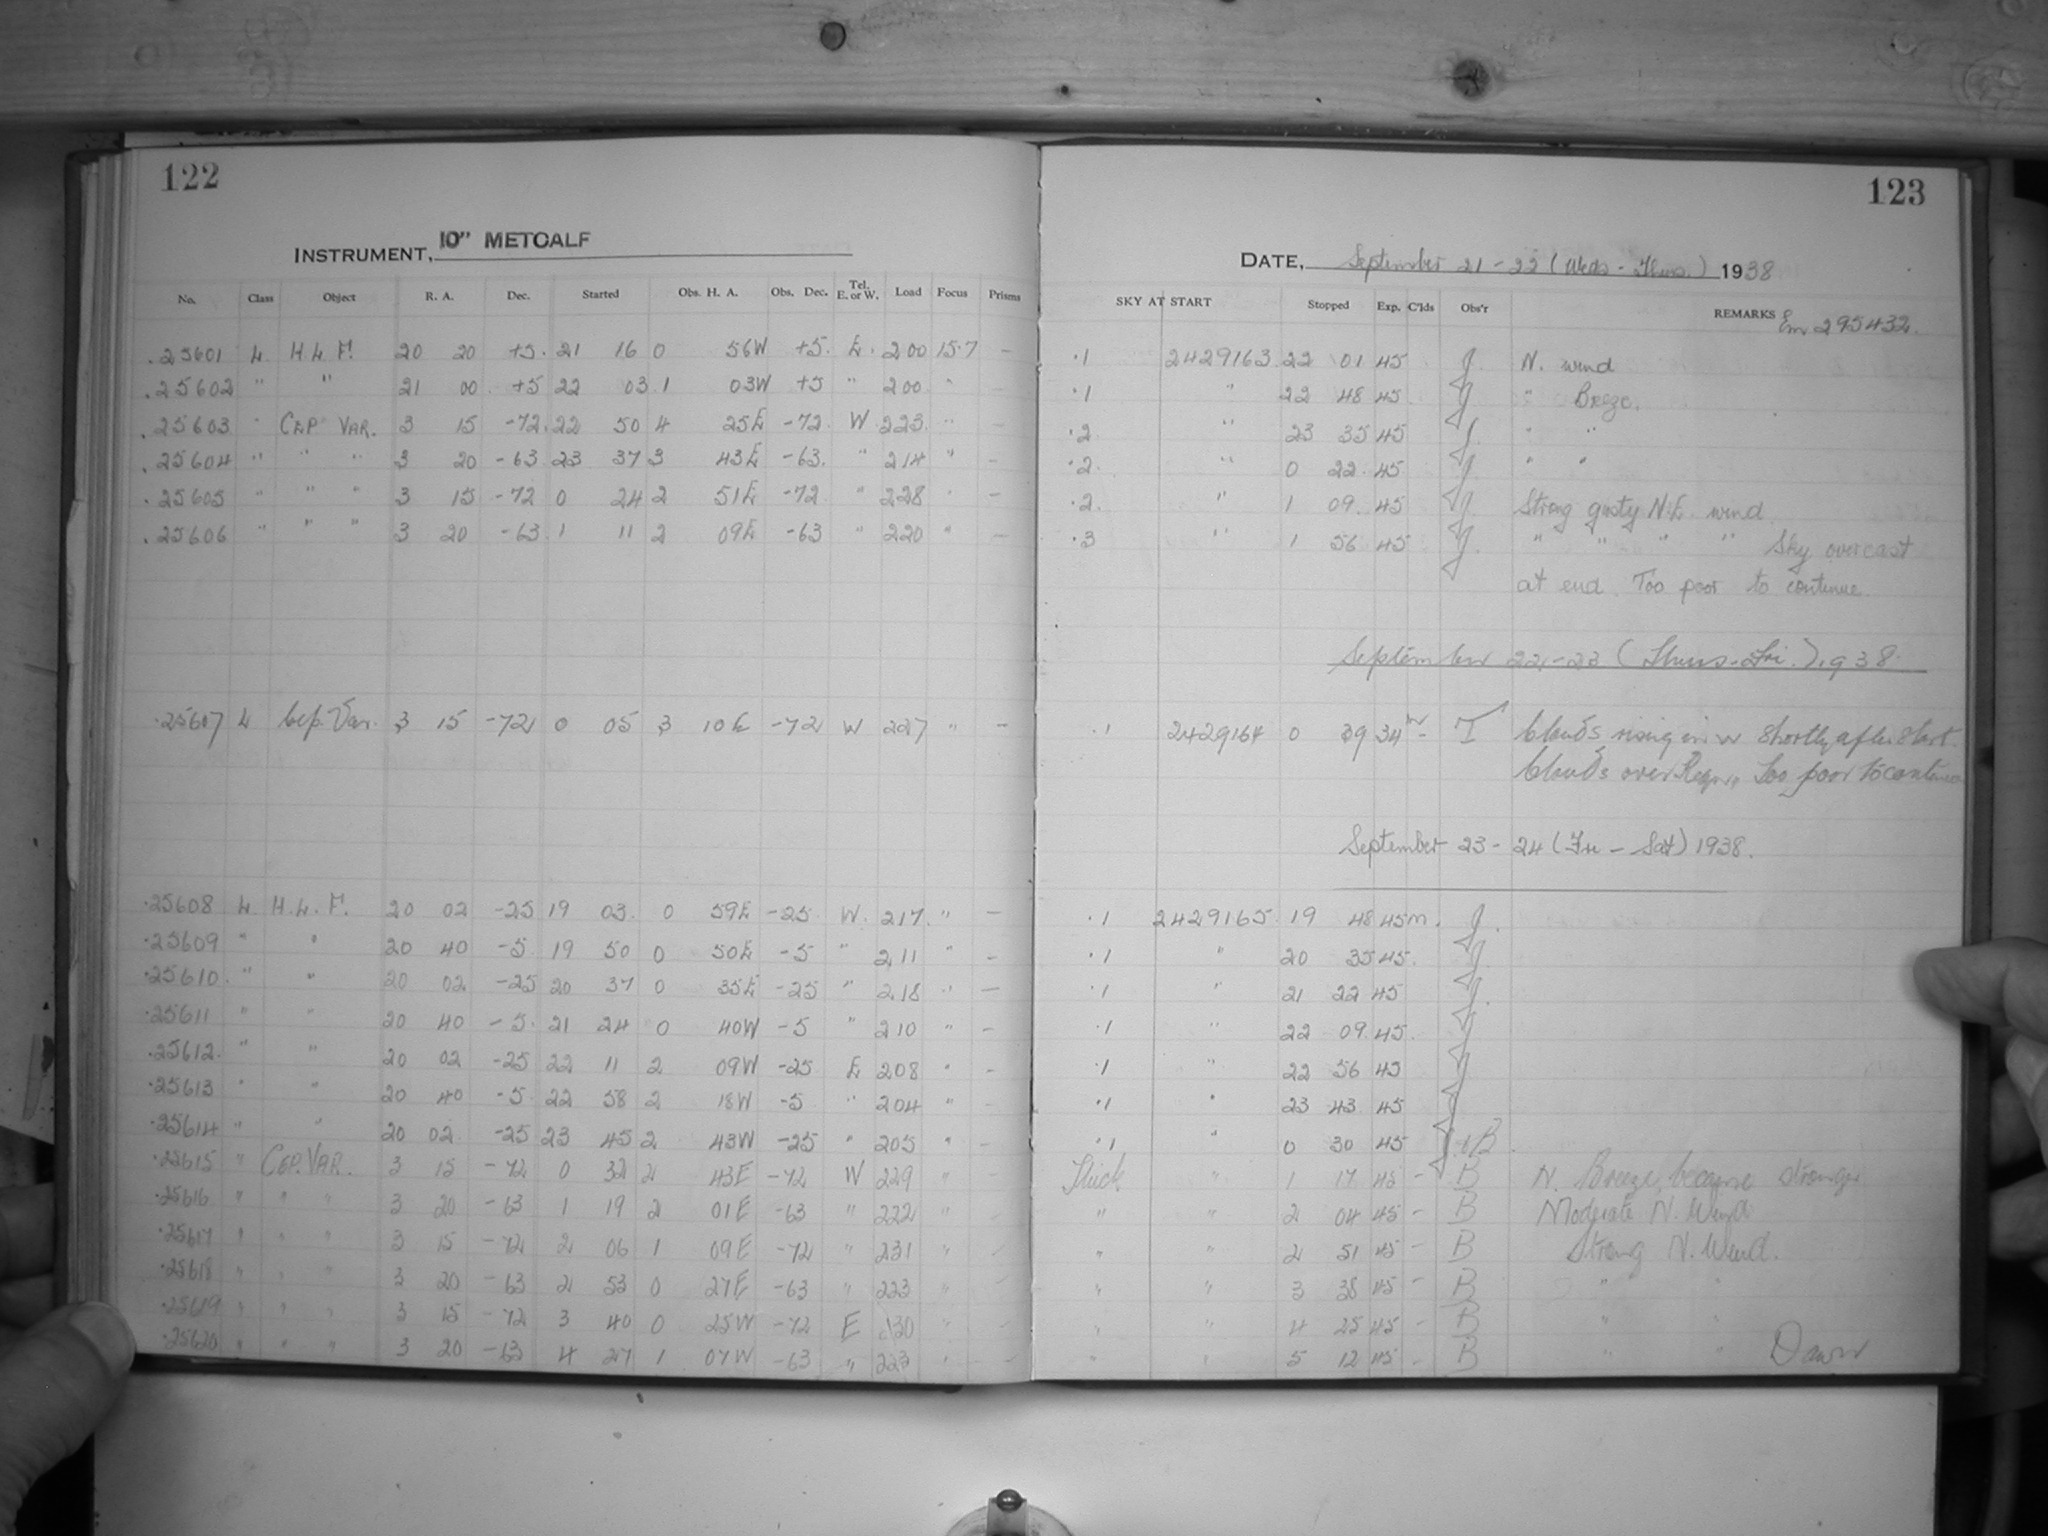 122
INSTRUMENT, 10" METCALF
No. Class Object R. A. Dec. Started Obs. H. A. Obs. Dec. Tel. E. or W. Load Focus Prisms
.25601 L H L F. 20 20 +5. 21 16 0 56W +5. E. 200 15.7 —
.25602 " " 21 00 +5 22 03 1 03W +5 " 200 " —
.25603 " CEP VAR. 3 15 -72. 22 50 4 25E -72. W 223. " —
.25604 " " " 3 20 -63 23 37 3 43E -63. " 214 " —
.25605 " " " 3 15 -72 0 24 2 51E -72. " 228 " —
.25606 " " " 3 20 -63 1 11 2 09E -63 " 220 " —
.25607 L Cep. Var. 3 15 -72 0 05 3 10E -72 W 227 " —
.25608 L H. L. F. 20 02 -25 19 03. 0 59E -25 W. 217. " —
.25609 " " 20 40 -5. 19 50 0 50E -5 " 211 " —
.25610. " " 20 02 -25 20 37 0 35E -25 " 218 " —
.25611 " " 20 40 -5. 21 24 0 40W -5 " 210 " —
.25612. " " 20 02 -25 22 11 2 09W -25 E 208 " —
.25613 " " 20 40 -5. 22 58 2 18W -5 " 204 " —
.25614 " " 20 02 -25 23 45 2 43W -25 " 205 " —
.25615 " CEP. VAR. 3 15 -72 0 32 2 43E -72 W 229 " —
.25616 " " " 3 20 -63 1 19 2 01E -63 " 222 " —
.25617 " " " 3 15 -72 2 06 1 09E -72 " 231 " —
.25618 " " " 3 20 -63 2 53 0 27E -63 " 223 " —
.25619 " " " 3 15 -72 3 40 0 25W -72 E " —
.25620 " " " 3 20 -63 4 27 1 07W -63 " 223 " —
123
DATE, September 21-22 (Weds - Thurs.) 1938
SKY AT START Stopped Exp. C'lds Obs'r REMARKS Em 295432.
.1 2429163 22 01 45 J. N. wind
.1 " 22 48 45 J " Breeze.
.2 " 23 35 45 J. " "
.2. " 0 22. 45 J. " "
.2. " 1 09. 45 J. Strong gusty N.E. wind.
.3 " 1 56 45 J. " " " " Sky overcast
at end. Too poor to continue.
September 22-23 (Thurs-Fri.) 1938.
.1 2429164 0 39 34m — T Clouds rising in W shortly after start.
Clouds over Region, Too poor to continue
September 23-24 (Fri - Sat) 1938.
.1 2429165 19 48 45m. J.
.1 " 20 35 45. J.
.1 " 21 22 45 J.
.1 " 22 09. 45. J
.1 " 22 56 45 J
.1 " 23 43 45 J
.1 " 0 30 45 J. B.
Thick " 1 17 45 — B N. Breeze, became stronger
" " 2 04 45 — B Moderate N. Wind
" " 2 51 45 — B Strong N. Wind.
" " 3 38 45 — B " "
" " 4 25 45 — B " "
" " 5 12 45 — B " " Dawn